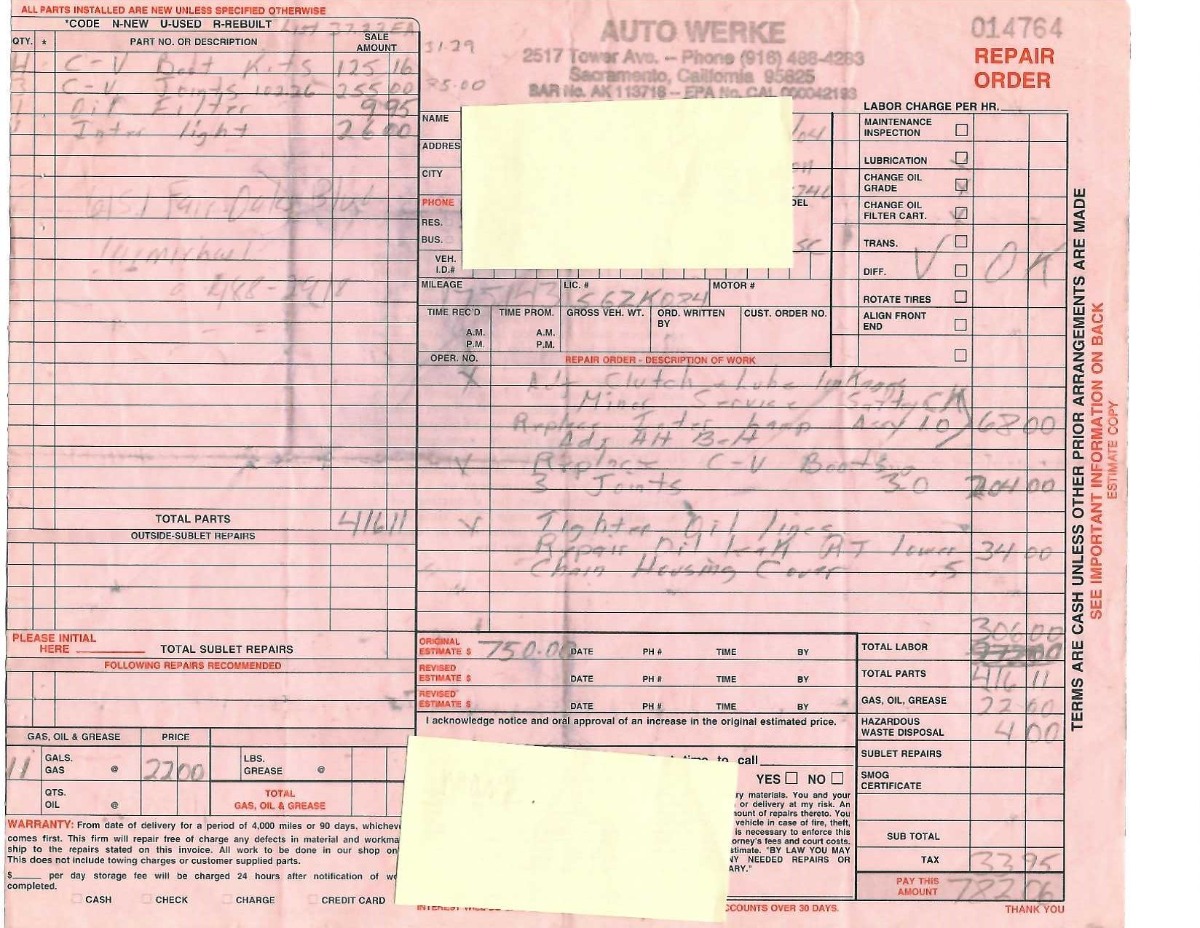 ALL PARTS INSTALLED ARE NEW UNLESS SPECIFIED OTHERWISE
*CODE N-NEW U-USED R-REBUILT
QTY. * PART NO. OR DESCRIPTION SALE AMOUNT
4 C-V Boot Kits 125 16
3 C-V Joints 255 00
1 Oil Filter 9 95
1 Inter light 26 00
31.29
85.00
6151 Fair Oaks Blvd
TOTAL PARTS 416 11
OUTSIDE-SUBLET REPAIRS
PLEASE INITIAL
HERE TOTAL SUBLET REPAIRS
FOLLOWING REPAIRS RECOMMENDED
GAS, OIL & GREASE PRICE
11 GALS. GAS @ 22 00 LBS. GREASE @
QTS. OIL @ TOTAL GAS, OIL & GREASE
WARRANTY: From date of delivery for a period of 4,000 miles or 90 days,
comes first. This firm will repair free of charge any defects in material and
ship to the repairs stated on this invoice. All work to be done in our shop
This does not include towing charges or customer supplied parts.
$ per day storage fee will be charged 24 hours after notification of
completed.
CASH CHECK CHARGE CREDIT CARD
AUTO WERKE
2517 Tower Ave. -- Phone (916) 488-4263
Sacramento, California 95825
BAR No. AK 113718 -- EPA No. CAL 000042193
014764
REPAIR
ORDER
NAME
ADDRES
CITY
PHONE
RES.
BUS.
VEH.
I.D.#
MILEAGE 175143 LIC. # MOTOR #
TIME REC'D A.M. P.M. TIME PROM. A.M. P.M. GROSS VEH. WT. ORD. WRITTEN BY CUST. ORDER NO.
OPER. NO. REPAIR ORDER - DESCRIPTION OF WORK
LABOR CHARGE PER HR.
MAINTENANCE INSPECTION
LUBRICATION
CHANGE OIL GRADE
CHANGE OIL FILTER CART.
TRANS.
DIFF. OK
ROTATE TIRES
ALIGN FRONT END
Adj Clutch Lube
Minor Service
Replace Inter Lamp Assy 10 68 00
Replace C-V Boots
3 Joints 30 204 00
Tighten Oil lines
Repair Oil leak AT lower 34 00
Chain Housing Cover .5
ORIGINAL ESTIMATE $ 750.00 DATE PH # TIME BY
REVISED ESTIMATE $ DATE PH # TIME BY
REVISED ESTIMATE $ DATE PH # TIME BY
I acknowledge notice and oral approval of an increase in the original estimated price.
time to call
YES NO
materials. You and your
or delivery at my risk. An
amount of repairs thereto. You
vehicle in case of fire, theft,
is necessary to enforce this
fees and court costs.
"BY LAW YOU MAY
NEEDED REPAIRS OR
COUNTS OVER 30 DAYS.
TOTAL LABOR 306 00
TOTAL PARTS 416 11
GAS, OIL, GREASE 22 00
HAZARDOUS WASTE DISPOSAL 4 00
SUBLET REPAIRS
SMOG CERTIFICATE
SUB TOTAL
TAX 33 95
PAY THIS AMOUNT 782 06
THANK YOU
TERMS ARE CASH UNLESS OTHER PRIOR ARRANGEMENTS ARE MADE
SEE IMPORTANT INFORMATION ON BACK
ESTIMATE COPY